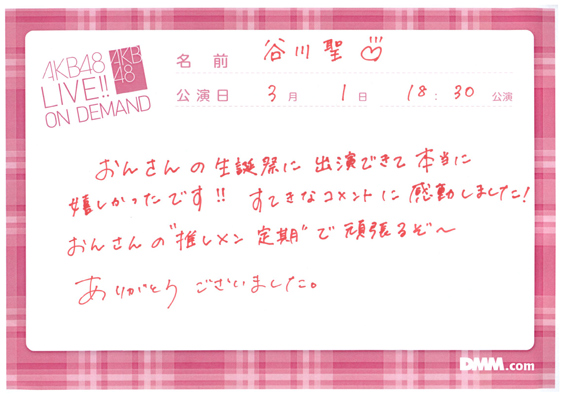 AKB48
LIVE!!
ON DEMAND
AKB
48
名前 谷川聖
公演日 3月 1日 18:30 公演
おんさんの生誕祭に出演できて本当に
嬉しかったです!! すてきなコメントに感動しました!
おんさんの"推しメン定期"で頑張るぞ〜
ありがとうございました。
DMM.com